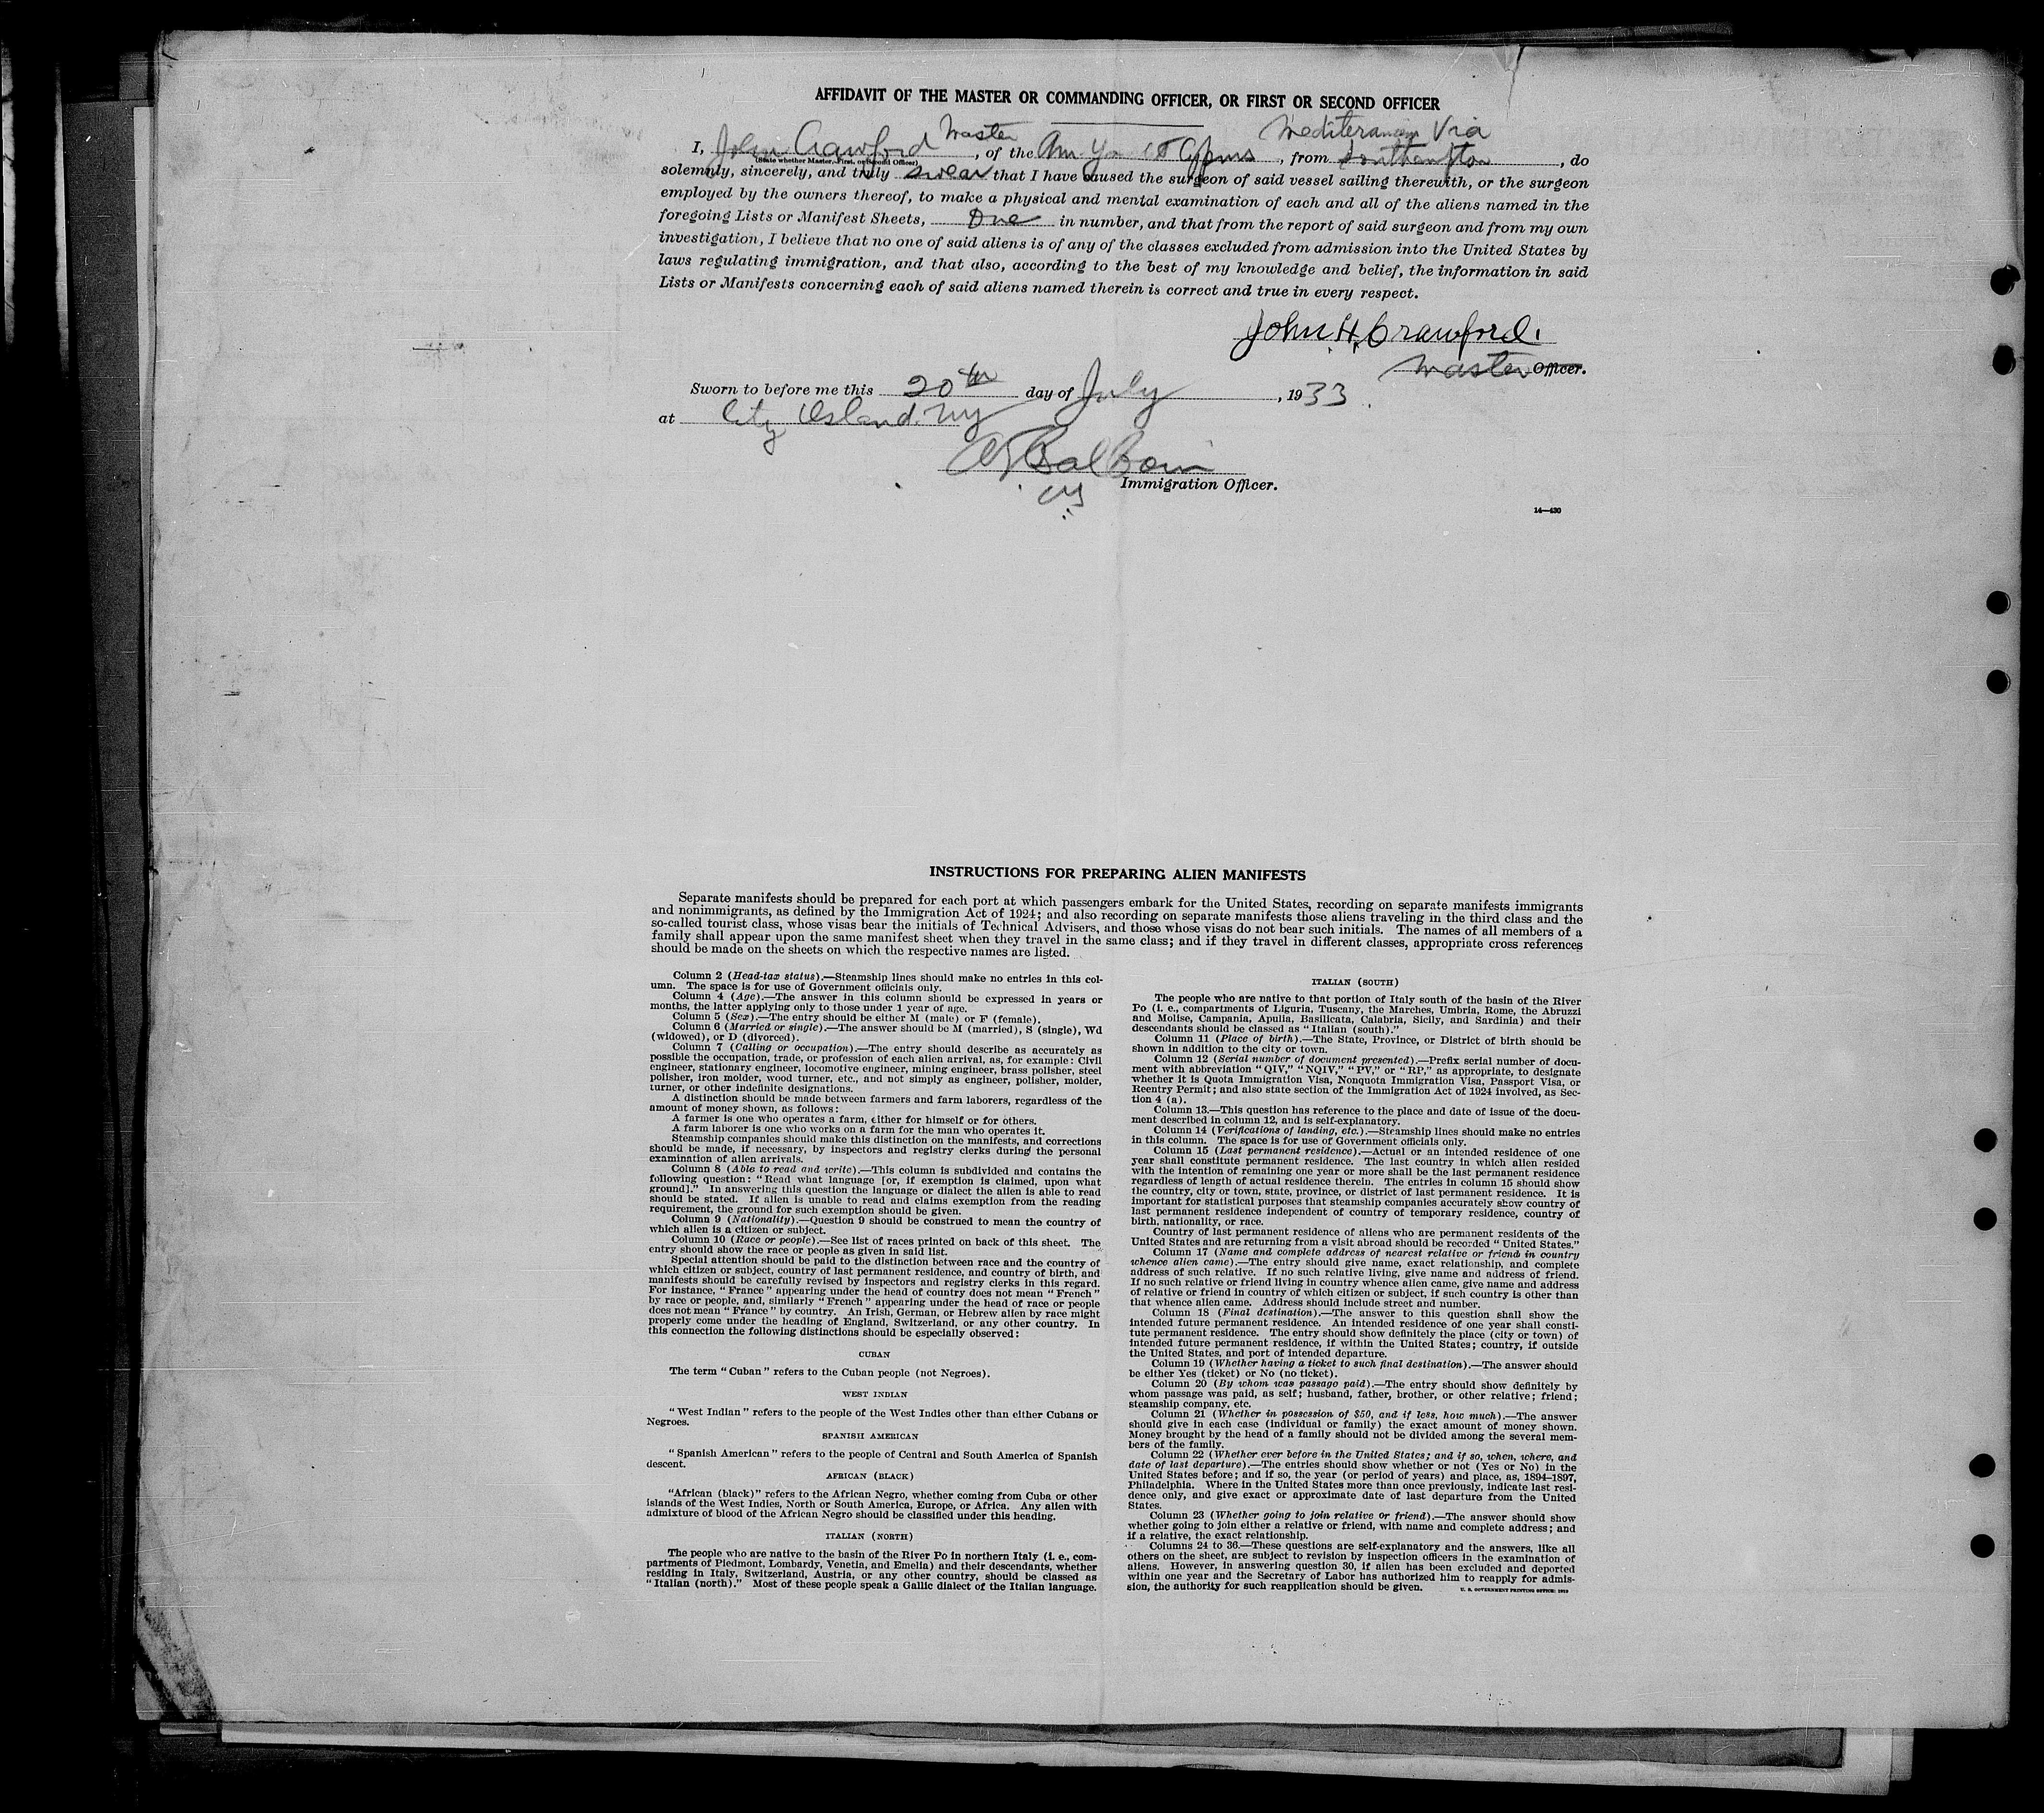 AFFIDAVIT OF THE MASTER OR COMMANDING OFFICER, OR FIRST OR SECOND OFFICER
Master Mediteranean Via
I, John Crawford, of the Am Ya, from Southampton, do
(State whether Master, First, or Second Officer)
solemnly, sincerely, and truly swear that I have caused the surgeon of said vessel sailing therewith, or the surgeon
employed by the owners thereof, to make a physical and mental examination of each and all of the aliens named in the
foregoing Lists or Manifest Sheets, One in number, and that from the report of said surgeon and from my own
investigation, I believe that no one of said aliens is of any of the classes excluded from admission into the United States by
laws regulating immigration, and that also, according to the best of my knowledge and belief, the information in said
Lists or Manifests concerning each of said aliens named therein is correct and true in every respect.
John H. Crawford.
Master Officer.
Sworn to before me this 20th day of July, 1933.
at City Island. NY
Immigration Officer.
14—430
INSTRUCTIONS FOR PREPARING ALIEN MANIFESTS
Separate manifests should be prepared for each port at which passengers embark for the United States, recording on separate manifests immigrants
and nonimmigrants, as defined by the Immigration Act of 1924; and also recording on separate manifests those aliens traveling in the third class and the
so-called tourist class, whose visas bear the initials of Technical Advisers, and those whose visas do not bear such initials. The names of all members of a
family shall appear upon the same manifest sheet when they travel in the same class; and if they travel in different classes, appropriate cross references
should be made on the sheets on which the respective names are listed.
Column 2 (Head-tax status).—Steamship lines should make no entries in this col-
umn. The space is for use of Government officials only.
Column 4 (Age).—The answer in this column should be expressed in years or
months, the latter applying only to those under 1 year of age.
Column 5 (Sex).—The entry should be either M (male) or F (female).
Column 6 (Married or single).—The answer should be M (married), S (single), Wd
(widowed), or D (divorced).
Column 7 (Calling or occupation).—The entry should describe as accurately as
possible the occupation, trade, or profession of each alien arrival, as, for example: Civil
engineer, stationary engineer, locomotive engineer, mining engineer, brass polisher, steel
polisher, iron molder, wood turner, etc., and not simply as engineer, polisher, molder,
turner, or other indefinite designations.
A distinction should be made between farmers and farm laborers, regardless of the
amount of money shown, as follows:
A farmer is one who operates a farm, either for himself or for others.
A farm laborer is one who works on a farm for the man who operates it.
Steamship companies should make this distinction on the manifests, and corrections
should be made, if necessary, by inspectors and registry clerks during the personal
examination of alien arrivals.
Column 8 (Able to read and write).—This column is subdivided and contains the
following question: "Read what language [or, if exemption is claimed, upon what
ground]." In answering this question the language or dialect the alien is able to read
should be stated. If alien is unable to read and claims exemption from the reading
requirement, the ground for such exemption should be given.
Column 9 (Nationality).—Question 9 should be construed to mean the country of
which alien is a citizen or subject.
Column 10 (Race or people).—See list of races printed on back of this sheet. The
entry should show the race or people as given in said list.
Special attention should be paid to the distinction between race and the country of
which citizen or subject, country of last permanent residence, and country of birth, and
manifests should be carefully revised by inspectors and registry clerks in this regard.
For instance, "France" appearing under the head of country does not mean "French"
by race or people, and, similarly "French" appearing under the head of race or people
does not mean "France" by country. An Irish, German, or Hebrew alien by race might
properly come under the heading of England, Switzerland, or any other country. In
this connection the following distinctions should be especially observed:
CUBAN
The term "Cuban" refers to the Cuban people (not Negroes).
WEST INDIAN
"West Indian" refers to the people of the West Indies other than either Cubans or
Negroes.
SPANISH AMERICAN
"Spanish American" refers to the people of Central and South America of Spanish
descent.
AFRICAN (BLACK)
"African (black)" refers to the African Negro, whether coming from Cuba or other
islands of the West Indies, North or South America, Europe, or Africa. Any alien with
admixture of blood of the African Negro should be classified under this heading.
ITALIAN (NORTH)
The people who are native to the basin of the River Po in northern Italy (i. e., com-
partments of Piedmont, Lombardy, Venetia, and Emelia) and their descendants, whether
residing in Italy, Switzerland, Austria, or any other country, should be classed as
"Italian (north)." Most of these people speak a Gallic dialect of the Italian language.
ITALIAN (SOUTH)
The people who are native to that portion of Italy south of the basin of the River
Po (i. e., compartments of Liguria, Tuscany, the Marches, Umbria, Rome, the Abruzzi
and Molise, Campania, Apulia, Basilicata, Calabria, Sicily, and Sardinia) and their
descendants should be classed as "Italian (south)."
Column 11 (Place of birth).—The State, Province, or District of birth should be
shown in addition to the city or town.
Column 12 (Serial number of document presented).—Prefix serial number of docu-
ment with abbreviation "QIV," "NQIV," "PV," or "RP," as appropriate, to designate
whether it is Quota Immigration Visa, Nonquota Immigration Visa, Passport Visa, or
Reentry Permit; and also state section of the Immigration Act of 1924 involved, as Sec-
tion 4 (a).
Column 13.—This question has reference to the place and date of issue of the docu-
ment described in column 12, and is self-explanatory.
Column 14 (Verifications of landing, etc.).—Steamship lines should make no entries
in this column. The space is for use of Government officials only.
Column 15 (Last permanent residence).—Actual or an intended residence of one
year shall constitute permanent residence. The last country in which alien resided
with the intention of remaining one year or more shall be the last permanent residence
regardless of length of actual residence therein. The entries in column 15 should show
the country, city or town, state, province, or district of last permanent residence. It is
important for statistical purposes that steamship companies accurately show country of
last permanent residence independent of country of temporary residence, country of
birth, nationality, or race.
Country of last permanent residence of aliens who are permanent residents of the
United States and are returning from a visit abroad should be recorded "United States."
Column 17 (Name and complete address of nearest relative or friend in country
whence alien came).—The entry should give name, exact relationship, and complete
address of such relative. If no such relative living, give name and address of friend.
If no such relative or friend living in country whence alien came, give name and address
of relative or friend in country of which citizen or subject, if such country is other than
that whence alien came. Address should include street and number.
Column 18 (Final destination).—The answer to this question shall show the
intended future permanent residence. An intended residence of one year shall consti-
tute permanent residence. The entry should show definitely the place (city or town) of
intended future permanent residence, if within the United States; country, if outside
the United States, and port of intended departure.
Column 19 (Whether having a ticket to such final destination).—The answer should
be either Yes (ticket) or No (no ticket).
Column 20 (By whom was passage paid).—The entry should show definitely by
whom passage was paid, as self; husband, father, brother, or other relative; friend;
steamship company, etc.
Column 21 (Whether in possession of $50, and if less, how much).—The answer
should give in each case (individual or family) the exact amount of money shown.
Money brought by the head of a family should not be divided among the several mem-
bers of the family.
Column 22 (Whether ever before in the United States; and if so, when, where, and
date of last departure).—The entries should show whether or not (Yes or No) in the
United States before; and if so, the year (or period of years) and place, as, 1894–1897,
Philadelphia. Where in the United States more than once previously, indicate last resi-
dence only, and give exact or approximate date of last departure from the United
States.
Column 23 (Whether going to join relative or friend).—The answer should show
whether going to join either a relative or friend, with name and complete address; and
if a relative, the exact relationship.
Columns 24 to 36.—These questions are self-explanatory and the answers, like all
others on the sheet, are subject to revision by inspection officers in the examination of
aliens. However, in answering question 30, if alien has been excluded and deported
within one year and the Secretary of Labor has authorized him to reapply for admis-
sion, the authority for such reapplication should be given.
U. S. GOVERNMENT PRINTING OFFICE: